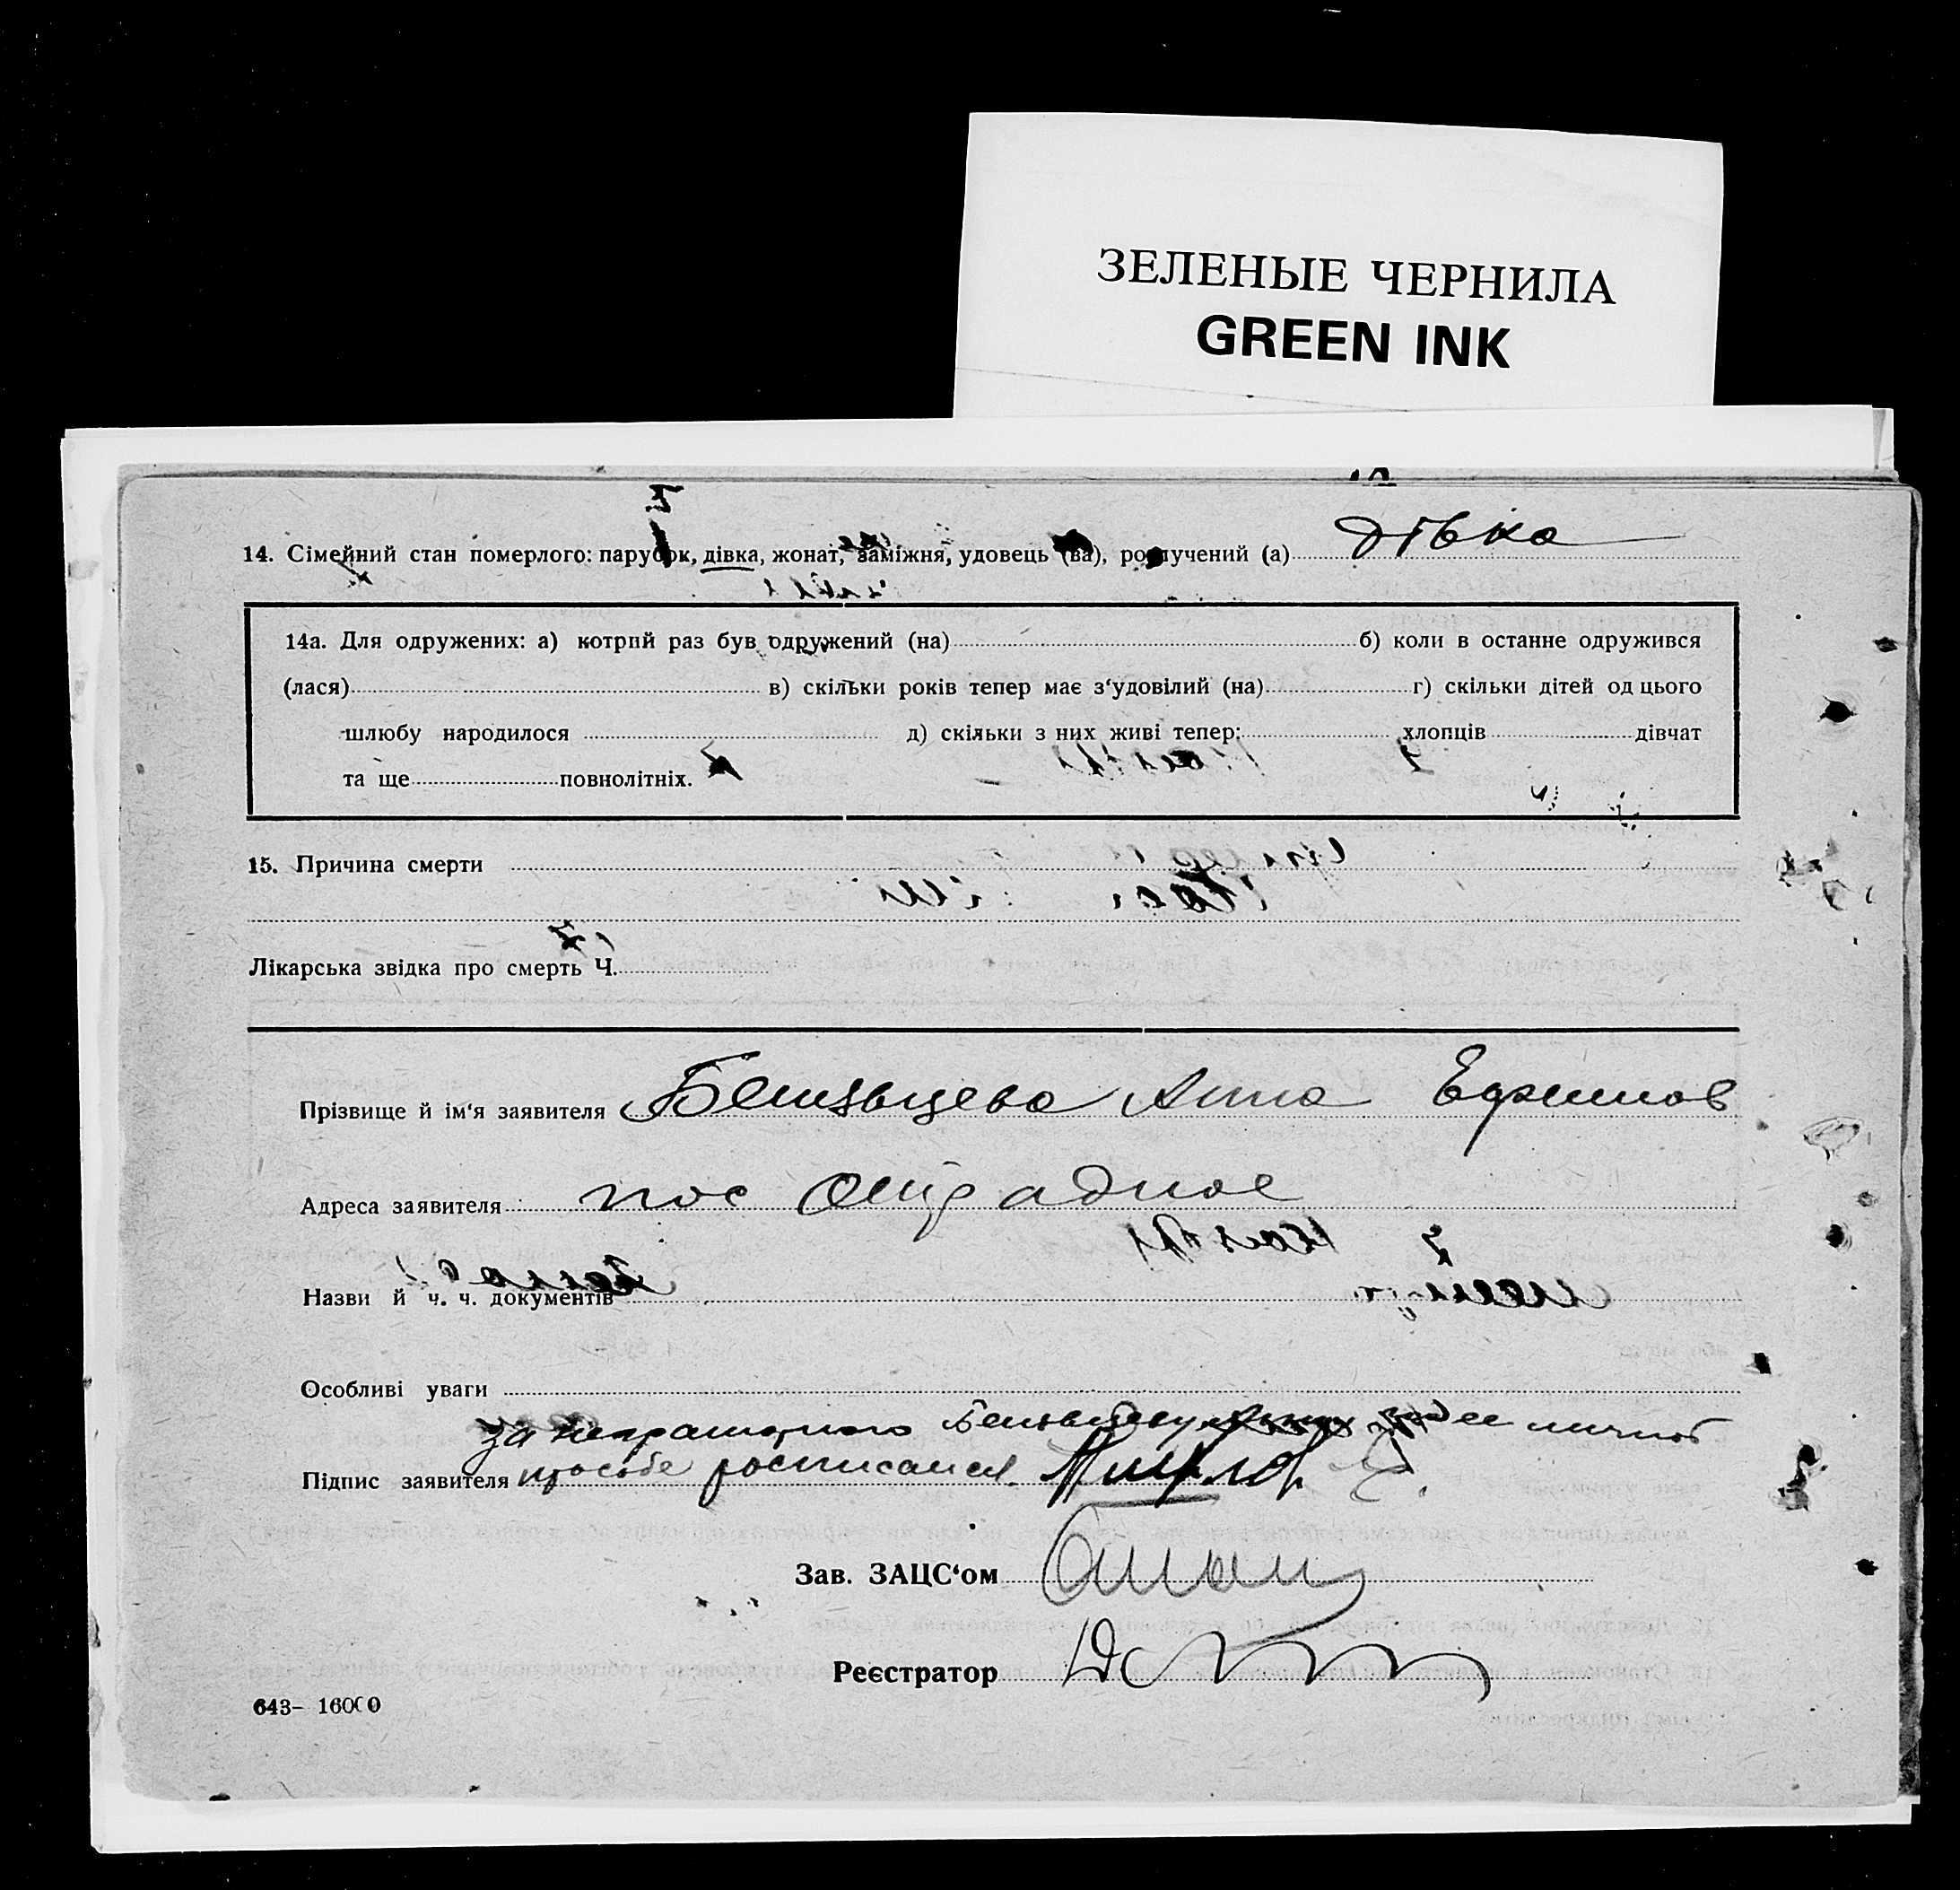 ЗЕЛЕНЫЕ ЧЕРНИЛА
GREEN INK
14. Сімейний стан померлого: парубок, дівка, жонат, заміжня, удовець (ва), розлучений (а) дівка
14а. Для одружених: а) котрий раз був одружений (на) б) коли в останне одружився
(лася) в) скільки років тепер має з‘удовілий (на) г) скільки дітей од цього
шлюбу народилося д) скільки з них живі тепер: хлопців дівчат
та ще повнолітніх.
15. Причина смерти
Лікарська звідка про смерть Ч.
Прізвище й ім‘я заявителя Анна Ефимов
Адреса заявителя пос Отрадное
Назви й ч. ч. документів
Особливі уваги
за неграмотного ее личной
Підпис заявителя прособе росписался
Зав. ЗАЦС‘ом
Реєстратор
643– 16000